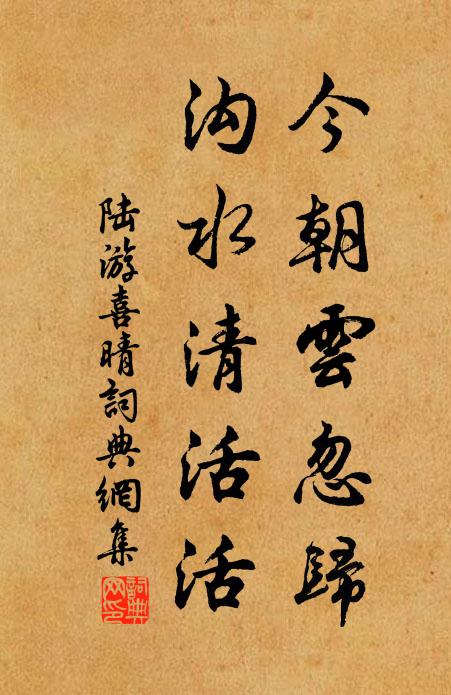 今朝雲忽歸
沟水清活活
陆游喜晴詞典網集
詞典網印